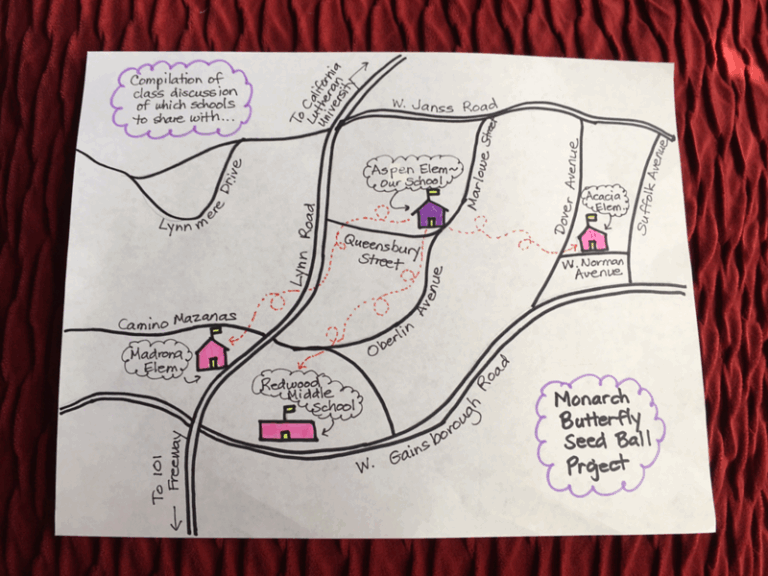 Compilation of
class discussion
of which schools
to share with...
To California
Lutheran
University
W. Janss Road
Lynnmere Drive
Lynn Road
Aspen Elem~
Our School
Marlowe Street
Dover Avenue
Acacia
Elem.
Suffolk Avenue
Queensbury
Street
W. Norman
Avenue
Camino Mazanas
Oberlin Avenue
Madrona
Elem.
Redwood
Middle
School
W. Gainsborough Road
To 101
Freeway
Monarch
Butterfly
Seed Ball
Project